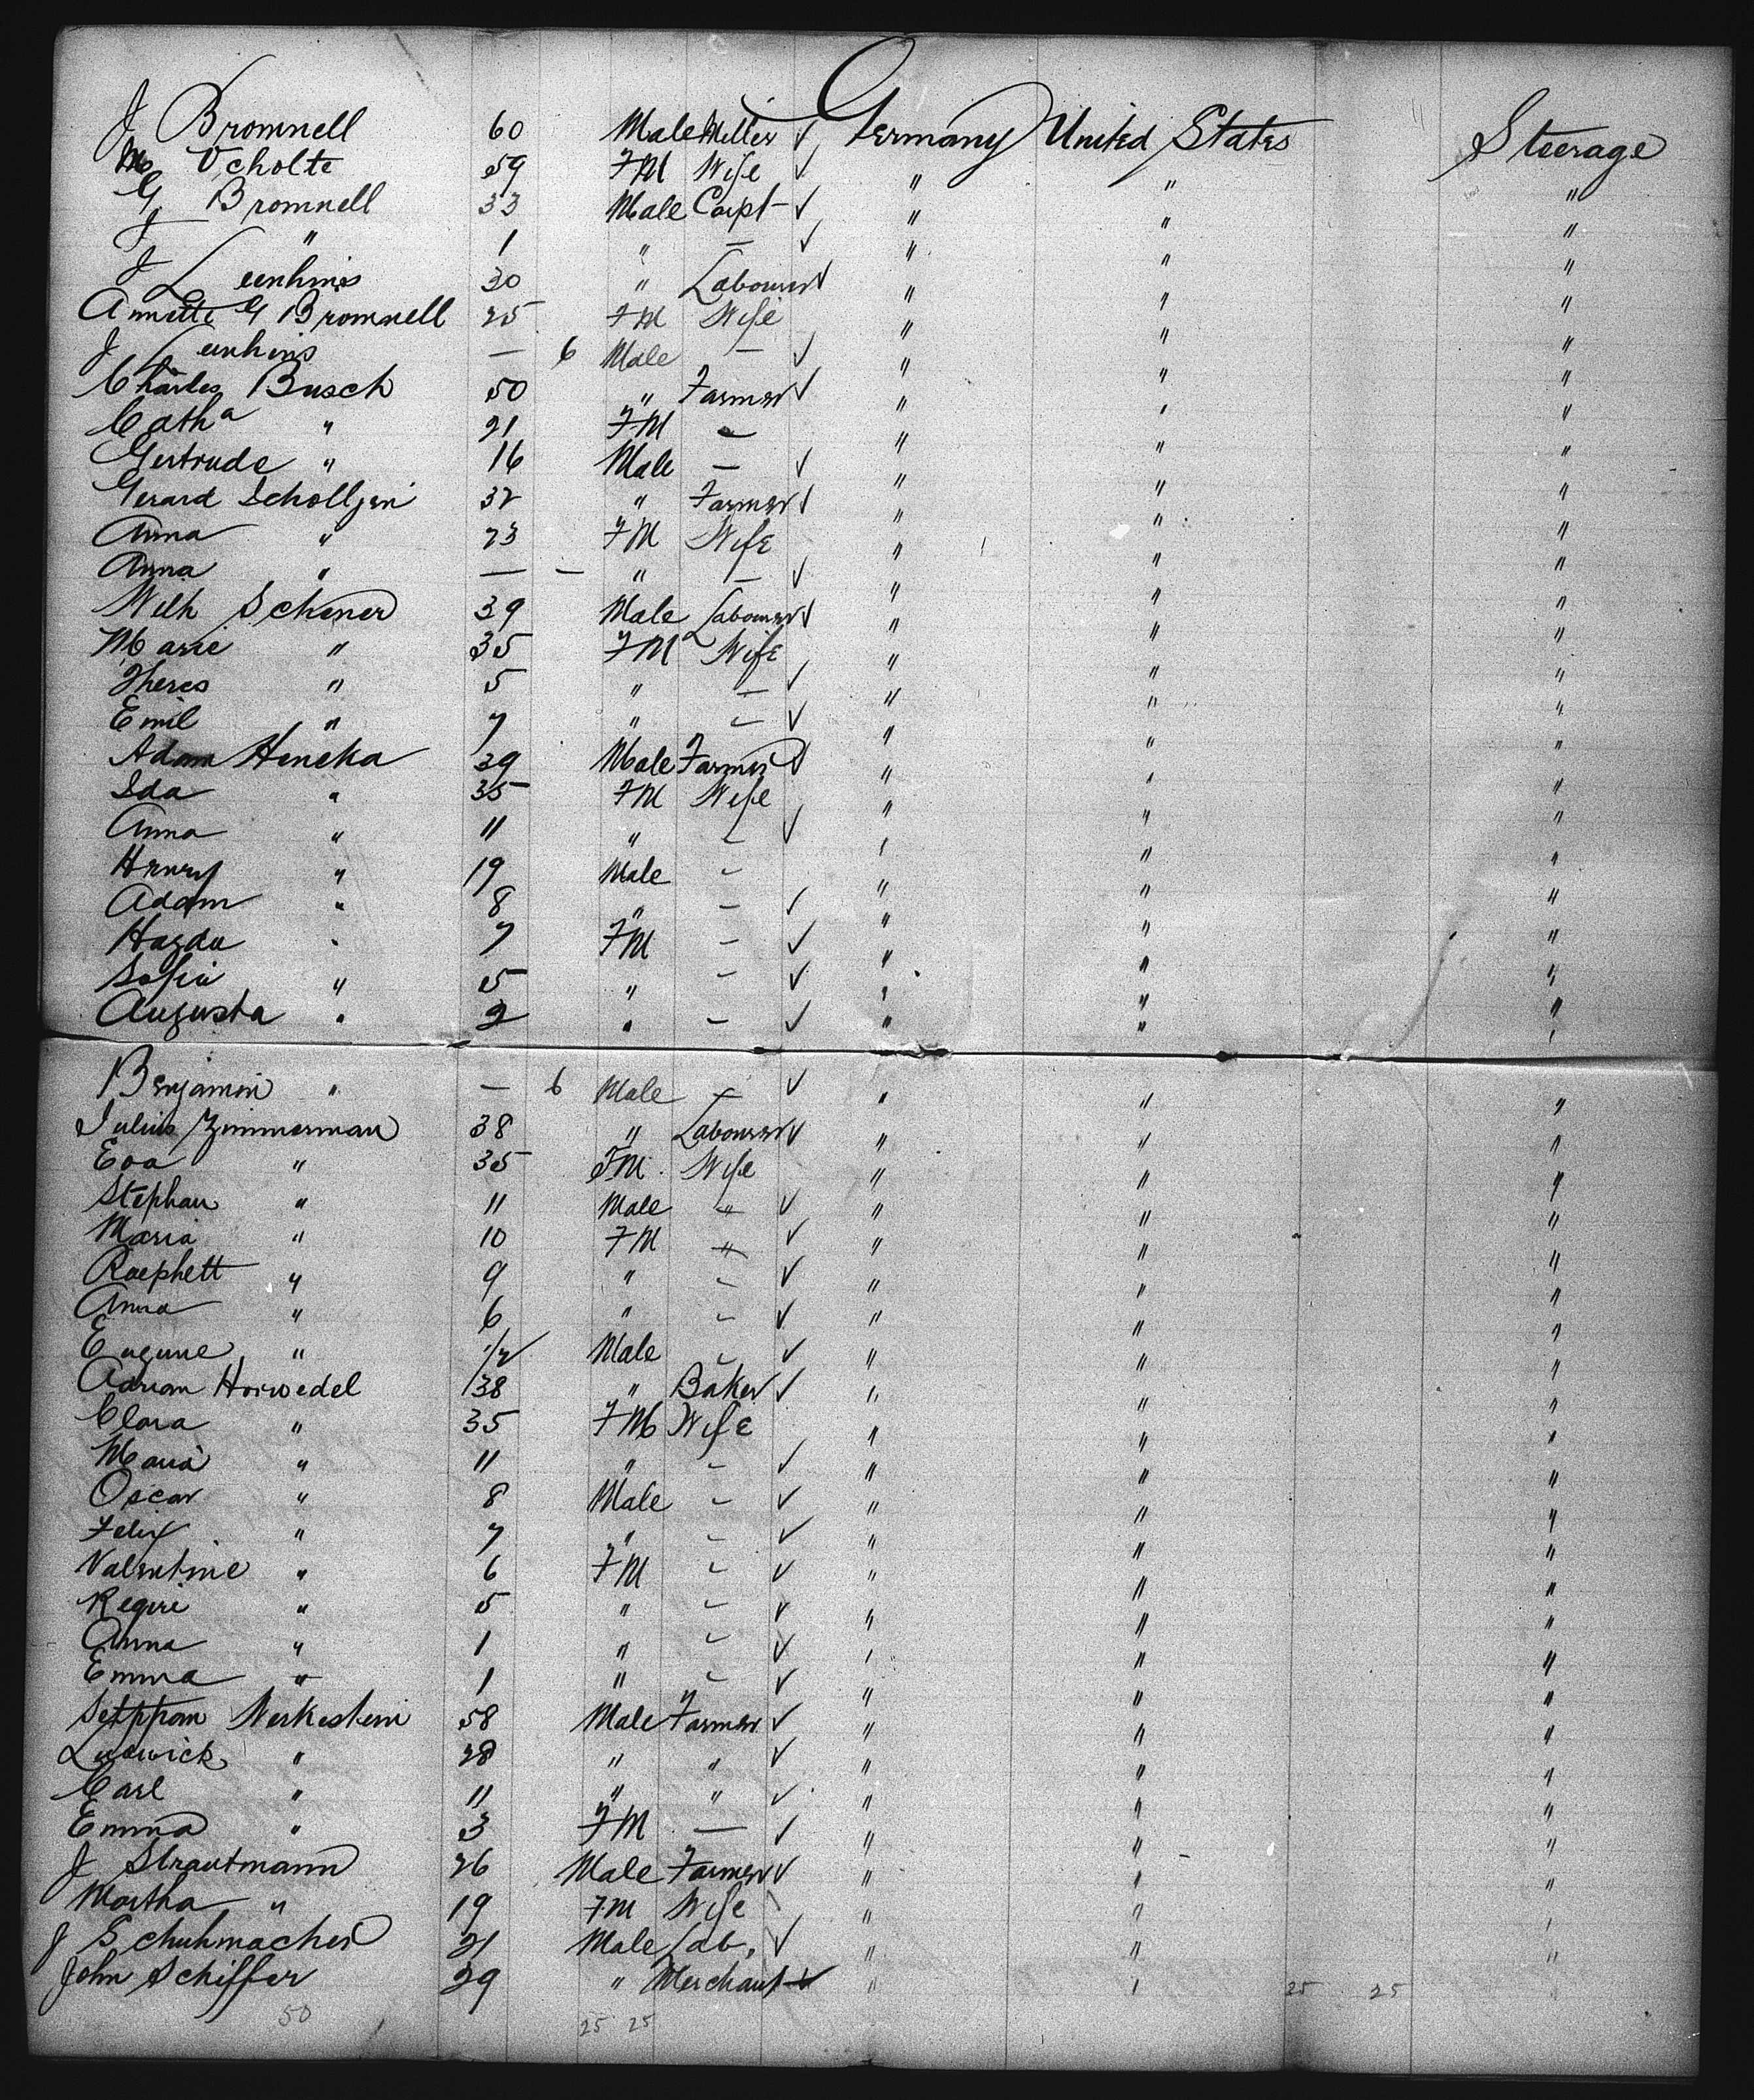 J Bromnell 60 Male Miller ✓ Germany United States Steerage
M Scholte 59 FM Wife ✓ " " "
G Bromnell 33 Male Carpt - ✓ " " "
J " 1 " — ✓ " " "
J Leenhinis 30 " Labourer ✓ " " "
Annette G Bromnell 25 FM Wife " " "
J Leenhinis — 6 Male — ✓ " " "
Charles Busch 50 " Farmer ✓ " " "
Cath a " 21 FM — " " "
Gertrude " 16 Male — ✓ " " "
Gerard Scholljen 32 " Farmer ✓ " " "
Anna " 23 FM Wife " " "
Anna " — — " — ✓ " " "
Wilh Schener 39 Male Labourer ✓ " " "
Marie " 35 FM Wife " " "
Theres " 5 " — ✓ " " "
Emil " 7 " — ✓ " " "
Adam Heneka 39 Male Farmer ✓ " " "
Ida " 35 FM Wife " " "
Anna " 11 " — ✓ " " "
Henry " 19 Male — " " "
Adam " 8 " — ✓ " " "
Hagda " 7 FM — ✓ " " "
Sofia " 5 " — ✓ " " "
Augusta " 2 " — ✓ " " "
Benjamin " — 6 Male — ✓ " " "
Julius Zimmerman 38 " Labourer ✓ " " "
Eva " 35 FM Wife " " "
Stephan " 11 Male " ✓ " " "
Maria " 10 FM " ✓ " " "
Raephett " 9 " — ✓ " " "
Anna " 6 " — ✓ " " "
Eugune " 1/2 Male — ✓ " " "
Adrian Horwedel 38 " Baker ✓ " " "
Clara " 35 FM Wife " " "
Maria " 11 " — ✓ " " "
Oscar " 8 Male — ✓ " " "
Felix " 7 " — ✓ " " "
Valentine " 6 FM — ✓ " " "
Regire " 5 " — ✓ " " "
Anna " 1 " — ✓ " " "
Emma " 1 " — ✓ " " "
Seppom Nerkestein 58 Male Farmer ✓ " " "
Ludwick " 28 " " ✓ " " "
Carl " 11 " " ✓ " " "
Emma " 3 FM — ✓ " " "
J Strautmann 26 Male Farmer ✓ " " "
Martha " 19 FM Wife " " "
J Schuhmacher 21 Male Lab. ✓ " " "
John Schiffer 29 " Merchant ✓ " " 25 25 "
50 25 25